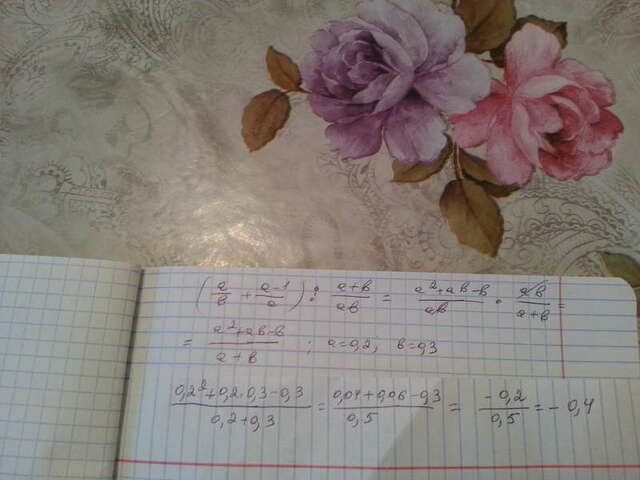 (a/b + a-1/a) : a+b/ab = a²+ab-b/ab · ab/a+b =
= a²+ab-b/a+b ; a=0,2, b=0,3
0,2²+0,2·0,3-0,3/0,2+0,3 = 0,04+0,06-0,3/0,5 = -0,2/0,5 = -0,4